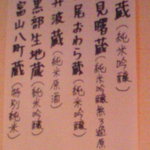 蔵(純米吟醸)
見曙蔵(純米吟醸無ろ過原
尾おわら蔵(純米吟醸)
井波蔵(純米原酒)
黒部生地蔵(純米吟醸)
富山八町蔵(特別純米)